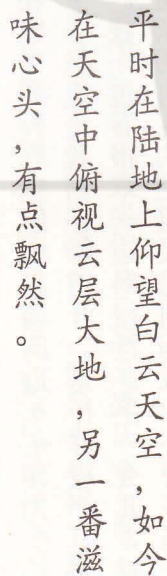 平时在陆地上仰望白云天空，如今
在天空中俯视云层大地，另一番滋
味心头，有点飘然。